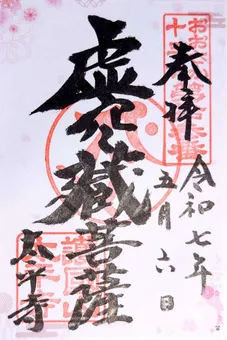 奉拝
令和七年
五月六日
虚空蔵菩薩
太平寺